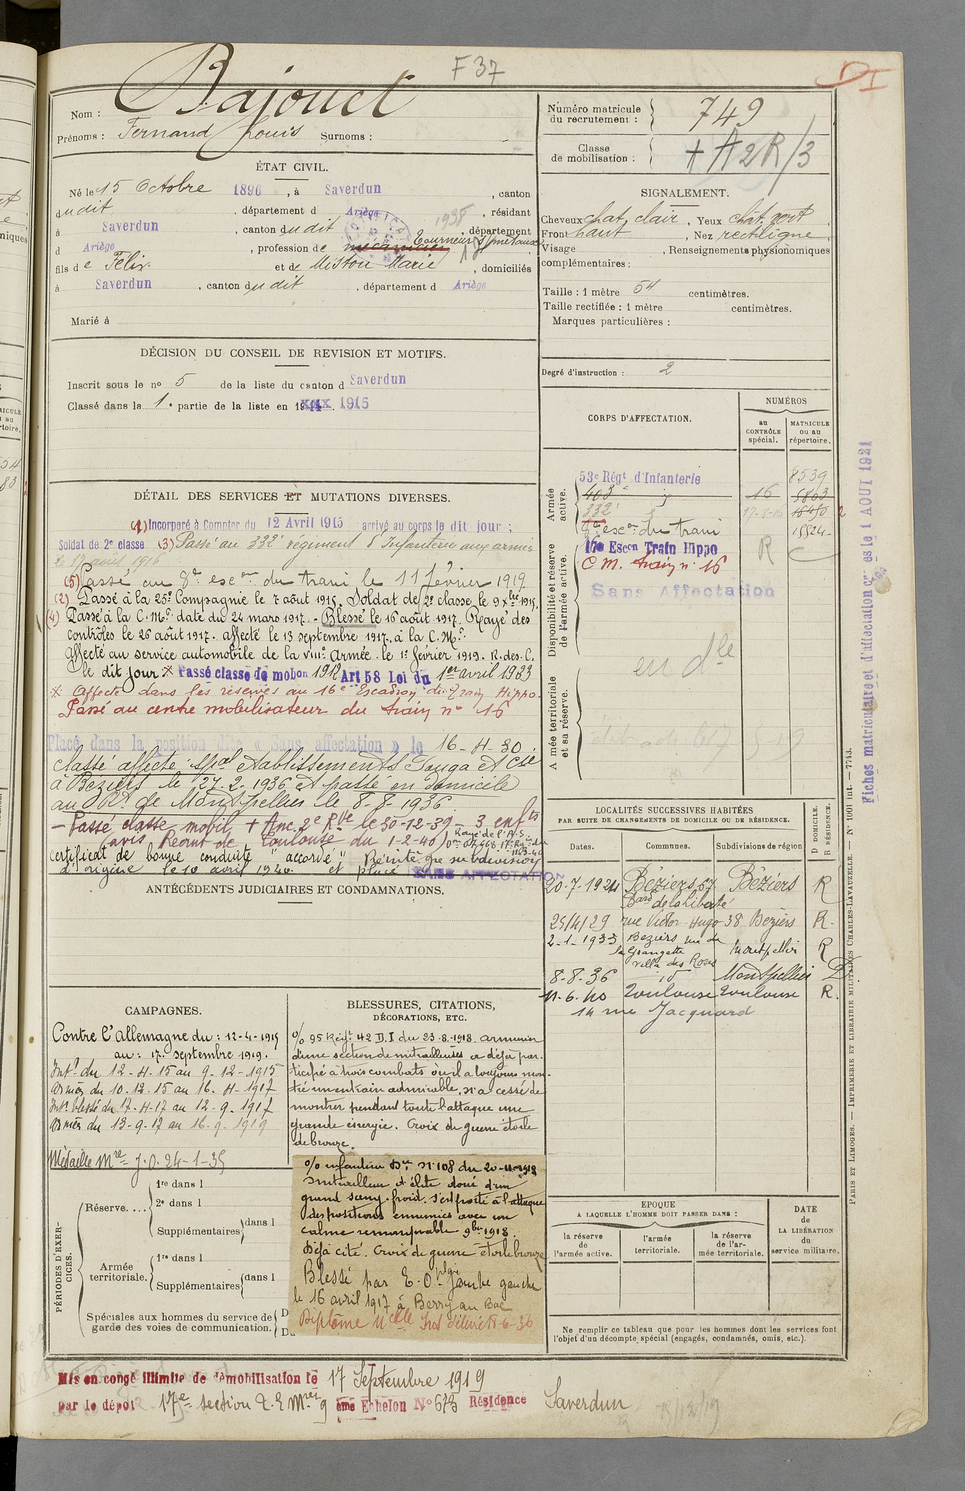 F 37
DI
Nom : Bajouet
Prénoms : Fernand Louis Surnoms :
ÉTAT CIVIL.
Né le 15 Octobre 1896, à Saverdun, canton
dudit, département d Ariège, résidant
à Saverdun, canton dudit, département
d Ariège, profession de mécanicien Tourneur s/métaux
fils de Félix et de Miston Marie, domiciliés
à Saverdun, canton dudit, département d Ariège
Marié à
DÉCISION DU CONSEIL DE REVISION ET MOTIFS.
Inscrit sous le no 5 de la liste du canton d Saverdun
Classé dans le 1. partie de la liste en 1915
DÉTAIL DES SERVICES ET MUTATIONS DIVERSES.
(1) Incorporé à Compter du 12 Avril 1915 arrivé au corps le dit jour ;
Soldat de 2e classe (3) Passé au 332e régiment d'Infanterie aux armées
(5) Passé au 8e escon du train le 11 février 1919
(2) Passé à la 25e Compagnie le 7 août 1915. Soldat de 2e classe le 9 xbre 1915.
(4) Passé à la C.M. date du 24 mars 1917. - Blessé le 16 avril 1917. Rayé des
contrôles le 26 août 1917. affecté le 13 septembre 1917. à la C.M.
Affecté au service automobile de la VIIIe Armée. le 1er février 1919. R. des. C.
le dit jour * Passé classe de mobon 1912 Art 58 Loi du 1er avril 1923
* Affecté dans les réserves au 16e Escadron du Train Hippo.
Passé au centre mobilisateur du train no 16
Placé dans la position dite « Sans affectation » le 16-4-30.
Classé affecté spal établissements Fouga et Cie
à Béziers le 27-2-1936 et passé en domicile
au Rt de Montpellier le 8-8-1936
- Passé classe mobil + Anc. 2e Rve le 30-12-39 - 3 enfts
Avis Recrut de Toulouse du 1-2-40
Rayé de l'A.S.
certificat de bonne conduite "accordé" Réintégré subdivision
d'origine le 10 avril 1940. et placé SANS AFFECTATION
ANTÉCÉDENTS JUDICIAIRES ET CONDAMNATIONS.
CAMPAGNES.
Contre l'Allemagne du : 12-4-1915
au : 17. septembre 1919.
Intr. du 12-4-15 au 9-12-1915
Armées du 10-12-15 au 16-4-1917
Intr. blessé du 17-4-17 au 12-9-1917
Armées du 13-9-17 au 16-9-1919
Médaille Mre J.O. 24-1-35
BLESSURES, CITATIONS,
DÉCORATIONS, ETC.
% 95 Régt 42 D.I du 23-8-1918. armurier
d'une section de mitrailleuses a déjà par-
ticipé à trois combats où il a toujours mon-
tré un entrain admirable, n'a cessé de
montrer pendant toute l'attaque une
grande énergie. Croix de guerre étoile
de bronze.
% infanterie Dre No 108 du 20-11-1918
Mitrailleur d'élite doué d'un
grand sang-froid. s'est porté à l'attaque
des positions ennemies avec un
calme remarquable 9bre 1918.
Déjà cité. Croix de guerre étoile bronze
Blessé par E.O. plaie jambe gauche
le 16 avril 1917 à Berry au Bac
Diplôme Mcelle Inst délivré 18-6-36
PÉRIODES D'EXERCICES.
Réserve....
1re dans l
2e dans l
Supplémentaires dans l
Armée territoriale.
1re dans l
Supplémentaires dans l
Spéciales aux hommes du service de garde des voies de communication.
Du
Du
Mis en congé illimité de démobilisation le 17 Septembre 1919
par le dépôt 17e section T.E.Mres 9 ème Echelon No 673 Résidence Saverdun
Numéro matricule du recrutement : 749
Classe de mobilisation : + A2R/3
SIGNALEMENT.
Cheveux chat. clair, Yeux chat. vert
Front haut, Nez rectiligne
Visage, Renseignements physionomiques
complémentaires :
Taille : 1 mètre 54 centimètres.
Taille rectifiée : 1 mètre centimètres.
Marques particulières :
Degré d'instruction : 2
CORPS D'AFFECTATION.
NUMÉROS
au CONTRÔLE spécial.
MATRICULE ou au répertoire.
Armée active.
53e Régt d'Infanterie 8539
403e 16 5803
332e
8e escon du train 15524
Disponibilité et réserve de l'armée active.
16e Escon Train Hippo R C
C M. train no 16
Sans Affectation
Armée territoriale et sa réserve.
en dle
LOCALITÉS SUCCESSIVES HABITÉES
PAR SUITE DE CHANGEMENTS DE DOMICILE OU DE RÉSIDENCE.
Dates. Communes. Subdivisions de région D DOMICILE. R RÉSIDENCE.
20-7-1924 Béziers 57 Béziers R
Bard de la Liberté
25/4/29 rue Victor Hugo 38 Béziers R.
2-1-1933 Béziers rue de la Grangette Montpellier R
villa des Roses
8-8-36 id Montpellier D
11-6-40 Toulouse Toulouse R.
14 rue Jacquard
EPOQUE
A LAQUELLE L'HOMME DOIT PASSER DANS :
la réserve de l'armée active.
l'armée territoriale.
la réserve de l'armée territoriale.
DATE de LA LIBÉRATION du service militaire.
Ne remplir ce tableau que pour les hommes dont les services font
l'objet d'un décompte spécial (engagés, condamnés, omis, etc.).
Fiches matriculaire et d'affectation créées le 1 AOUT 1921
PARIS ET LIMOGES. — IMPRIMERIE ET LIBRAIRIE MILITAIRES CHARLES-LAVAUZELLE. — No 1001 int. — 7743.